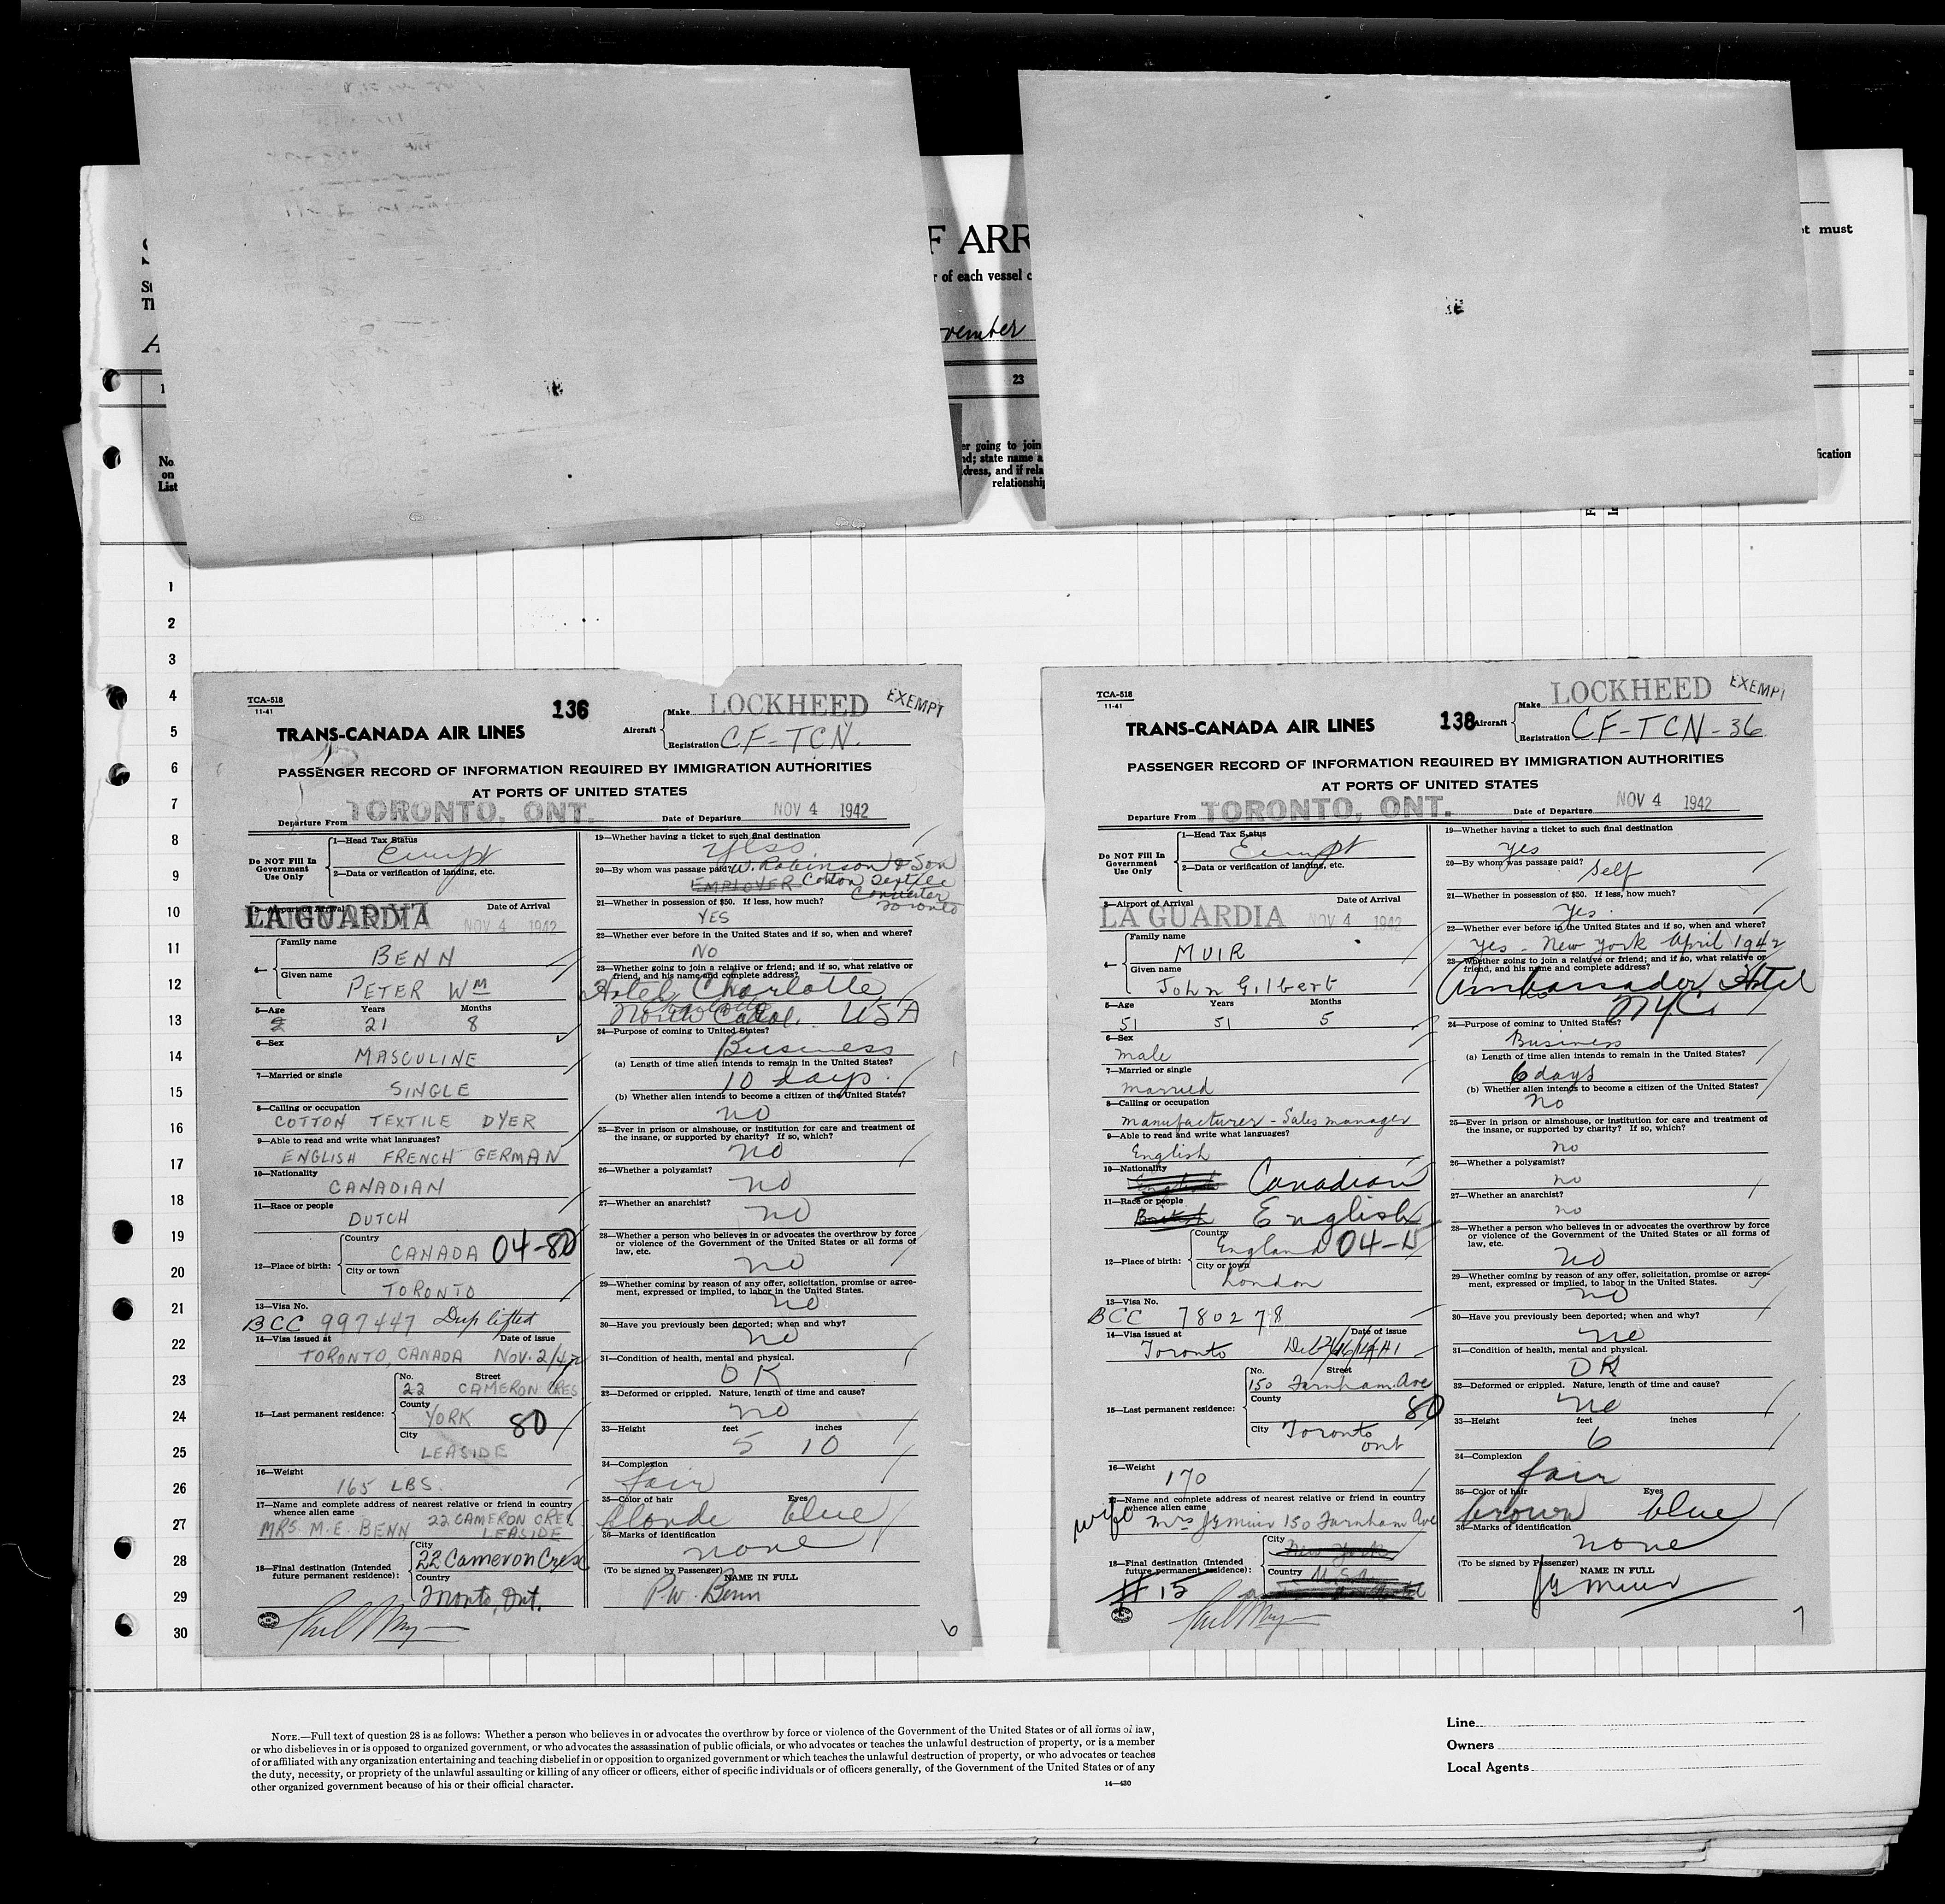 F ARR
t must
r of each vessel c
vember
23
er going to join
nd; state name a
dress, and if rela
relationship
fication
No.
on
List
1
2
3
4
5
6
7
8
9
10
11
12
13
14
15
16
17
18
19
20
21
22
23
24
25
26
27
28
29
30
TCA-518
11-41
136
LOCKHEED
EXEMPT
TRANS-CANADA AIR LINES
Aircraft
Make
Registration CF-TCN.
PASSENGER RECORD OF INFORMATION REQUIRED BY IMMIGRATION AUTHORITIES
AT PORTS OF UNITED STATES
Departure From TORONTO, ONT.
Date of Departure NOV 4 1942
Do NOT Fill In Government Use Only
1—Head Tax Status
Exempt
2—Data or verification of landing, etc.
3—Airport of Arrival
Date of Arrival
LA GUARDIA NOV 4 1942
4—
Family name
BENN
Given name
PETER Wm
5—Age Years Months
21 8
6—Sex
MASCULINE
7—Married or single
SINGLE
8—Calling or occupation
COTTON TEXTILE DYER
9—Able to read and write what languages?
ENGLISH FRENCH GERMAN
10—Nationality
CANADIAN
11—Race or people
DUTCH
12—Place of birth:
Country
CANADA 04-80
City or town
TORONTO
13—Visa No.
BCC 997447 Dup lifted
14—Visa issued at Date of issue
TORONTO, CANADA Nov. 2/42
15—Last permanent residence:
No. Street
22 CAMERON CRES
County
YORK 80
City
LEASIDE
16—Weight
165 LBS.
17—Name and complete address of nearest relative or friend in country
whence alien came
MRS. M. E. BENN 22 CAMERON CRES
LEASIDE
18—Final destination (Intended
future permanent residence):
City
22 Cameron Cres
Country
Toronto, Ont.
19—Whether having a ticket to such final destination
yes
20—By whom was passage paid? W. Robinson & Son
EMPLOYER Cotton Textile
Converter
Toronto
21—Whether in possession of $50. If less, how much?
YES
22—Whether ever before in the United States and if so, when and where?
NO
23—Whether going to join a relative or friend; and if so, what relative or
friend, and his name and complete address?
Hotel Charlotte
Charlotte
North Carol. USA
24—Purpose of coming to United States?
Business
(a) Length of time alien intends to remain in the United States?
10 days.
(b) Whether alien intends to become a citizen of the United States?
no
25—Ever in prison or almshouse, or institution for care and treatment of
the insane, or supported by charity? If so, which?
no
26—Whether a polygamist?
no
27—Whether an anarchist?
no
28—Whether a person who believes in or advocates the overthrow by force
or violence of the Government of the United States or all forms of
law, etc.
no
29—Whether coming by reason of any offer, solicitation, promise or agree-
ment, expressed or implied, to labor in the United States.
no
30—Have you previously been deported; when and why?
no
31—Condition of health, mental and physical.
OK
32—Deformed or crippled. Nature, length of time and cause?
no
33—Height feet inches
5 10
34—Complexion
fair
35—Color of hair Eyes
blonde blue
36—Marks of identification
none
(To be signed by Passenger)
NAME IN FULL
P.W. Benn
6
TCA-518
11-41
138
LOCKHEED
EXEMPT
TRANS-CANADA AIR LINES
Aircraft
Make
Registration CF-TCN-36
PASSENGER RECORD OF INFORMATION REQUIRED BY IMMIGRATION AUTHORITIES
AT PORTS OF UNITED STATES
Departure From TORONTO, ONT.
Date of Departure NOV 4 1942
Do NOT Fill In Government Use Only
1—Head Tax Status
Exempt
2—Data or verification of landing, etc.
3—Airport of Arrival
Date of Arrival
LA GUARDIA NOV 4 1942
4—
Family name
MUIR
Given name
John Gilbert
5—Age Years Months
51 51 5
6—Sex
male
7—Married or single
married
8—Calling or occupation
manufacturer - Sales manager
9—Able to read and write what languages?
English
10—Nationality
Canadian
11—Race or people
British English
12—Place of birth:
Country
England 04-15
City or town
London
13—Visa No.
BCC 780278
14—Visa issued at Date of issue
Toronto
15—Last permanent residence:
No. Street
150 Farnham Ave
County
80
City
Toronto
Ont
16—Weight
170
17—Name and complete address of nearest relative or friend in country
whence alien came
wife Mrs JG Muir 150 Farnham Ave
18—Final destination (Intended
future permanent residence):
City
New York
Country
U.S.A.
# 15
19—Whether having a ticket to such final destination
yes
20—By whom was passage paid?
Self
21—Whether in possession of $50. If less, how much?
yes
22—Whether ever before in the United States and if so, when and where?
yes - New York April 1942
23—Whether going to join a relative or friend; and if so, what relative or
friend, and his name and complete address?
no
Ambassador Hotel
NYC
24—Purpose of coming to United States?
Business
(a) Length of time alien intends to remain in the United States?
6 days
(b) Whether alien intends to become a citizen of the United States?
no
25—Ever in prison or almshouse, or institution for care and treatment of
the insane, or supported by charity? If so, which?
no
26—Whether a polygamist?
no
27—Whether an anarchist?
no
28—Whether a person who believes in or advocates the overthrow by force
or violence of the Government of the United States or all forms of
law, etc.
no
29—Whether coming by reason of any offer, solicitation, promise or agree-
ment, expressed or implied, to labor in the United States.
no
30—Have you previously been deported; when and why?
no
31—Condition of health, mental and physical.
OK
32—Deformed or crippled. Nature, length of time and cause?
no
33—Height feet inches
6
34—Complexion
fair
35—Color of hair Eyes
brown blue
36—Marks of identification
none
(To be signed by Passenger)
NAME IN FULL
JG Muir
7
NOTE.—Full text of question 28 is as follows: Whether a person who believes in or advocates the overthrow by force or violence of the Government of the United States or of all forms of law,
or who disbelieves in or is opposed to organized government, or who advocates the assassination of public officials, or who advocates or teaches the unlawful destruction of property, or is a member
of or affiliated with any organization entertaining and teaching disbelief in or opposition to organized government or which teaches the unlawful destruction of property, or who advocates or teaches
the duty, necessity, or propriety of the unlawful assaulting or killing of any officer or officers, either of specific individuals or of officers generally, of the Government of the United States or of any
other organized government because of his or their official character.
14—430
Line
Owners
Local Agents